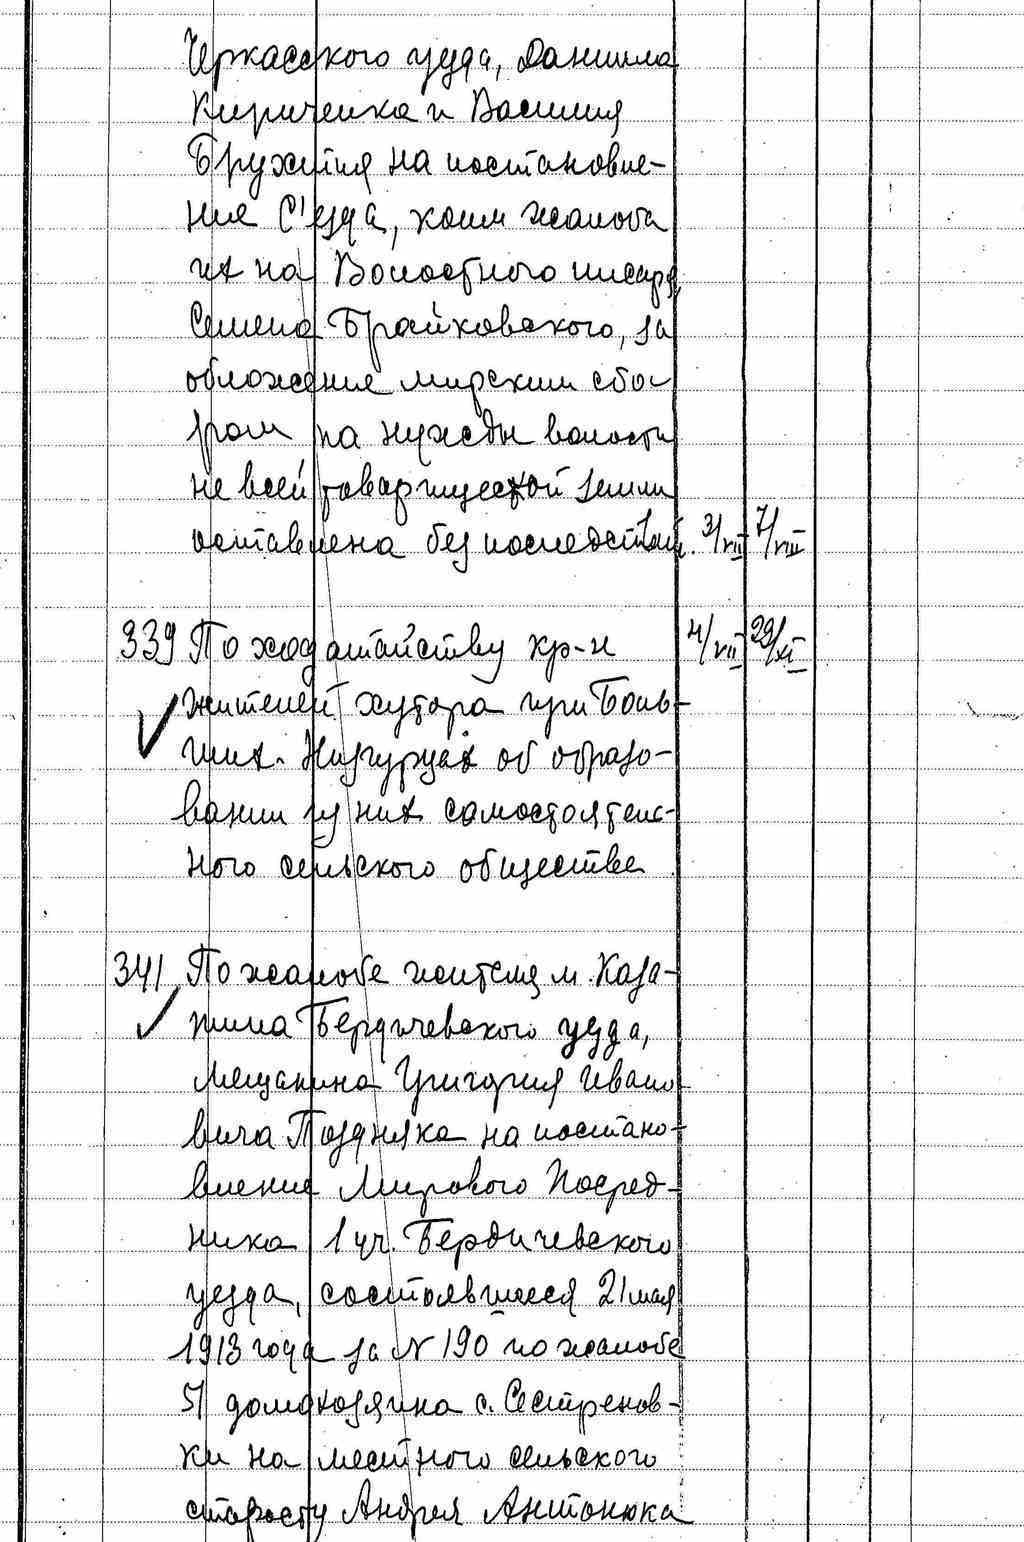 Черкасского уезда, Даниила
Кириченка и Василия
на постановле-
ние С'езда, коим жалоба
их на Волостного писаря,
Семена Брайковского, за
обложение мирским сбо-
ром на нужды волости
не всей товарищеской земли
оставлена без последствий. 3/VII 7/VIII
339 По ходатайству кр-н 4/VII 29/XI
жителей хутора при Боль-
ших-Низгурцах об образо-
вании у них самостоятель-
ного сельского общества
341 По жалобе жителя м. Каза-
тина Бердичевского уезда,
мещанина Григория Ивано-
вича Поздняка на постано-
вление Мирового Посред-
ника 1 уч. Бердичевского
уезда, состоявшееся 21 мая
1913 года за N 190 по жалобе
51 домохозяина с. Сестренов-
ки на местного сельского
старосту Андрея Антонюка